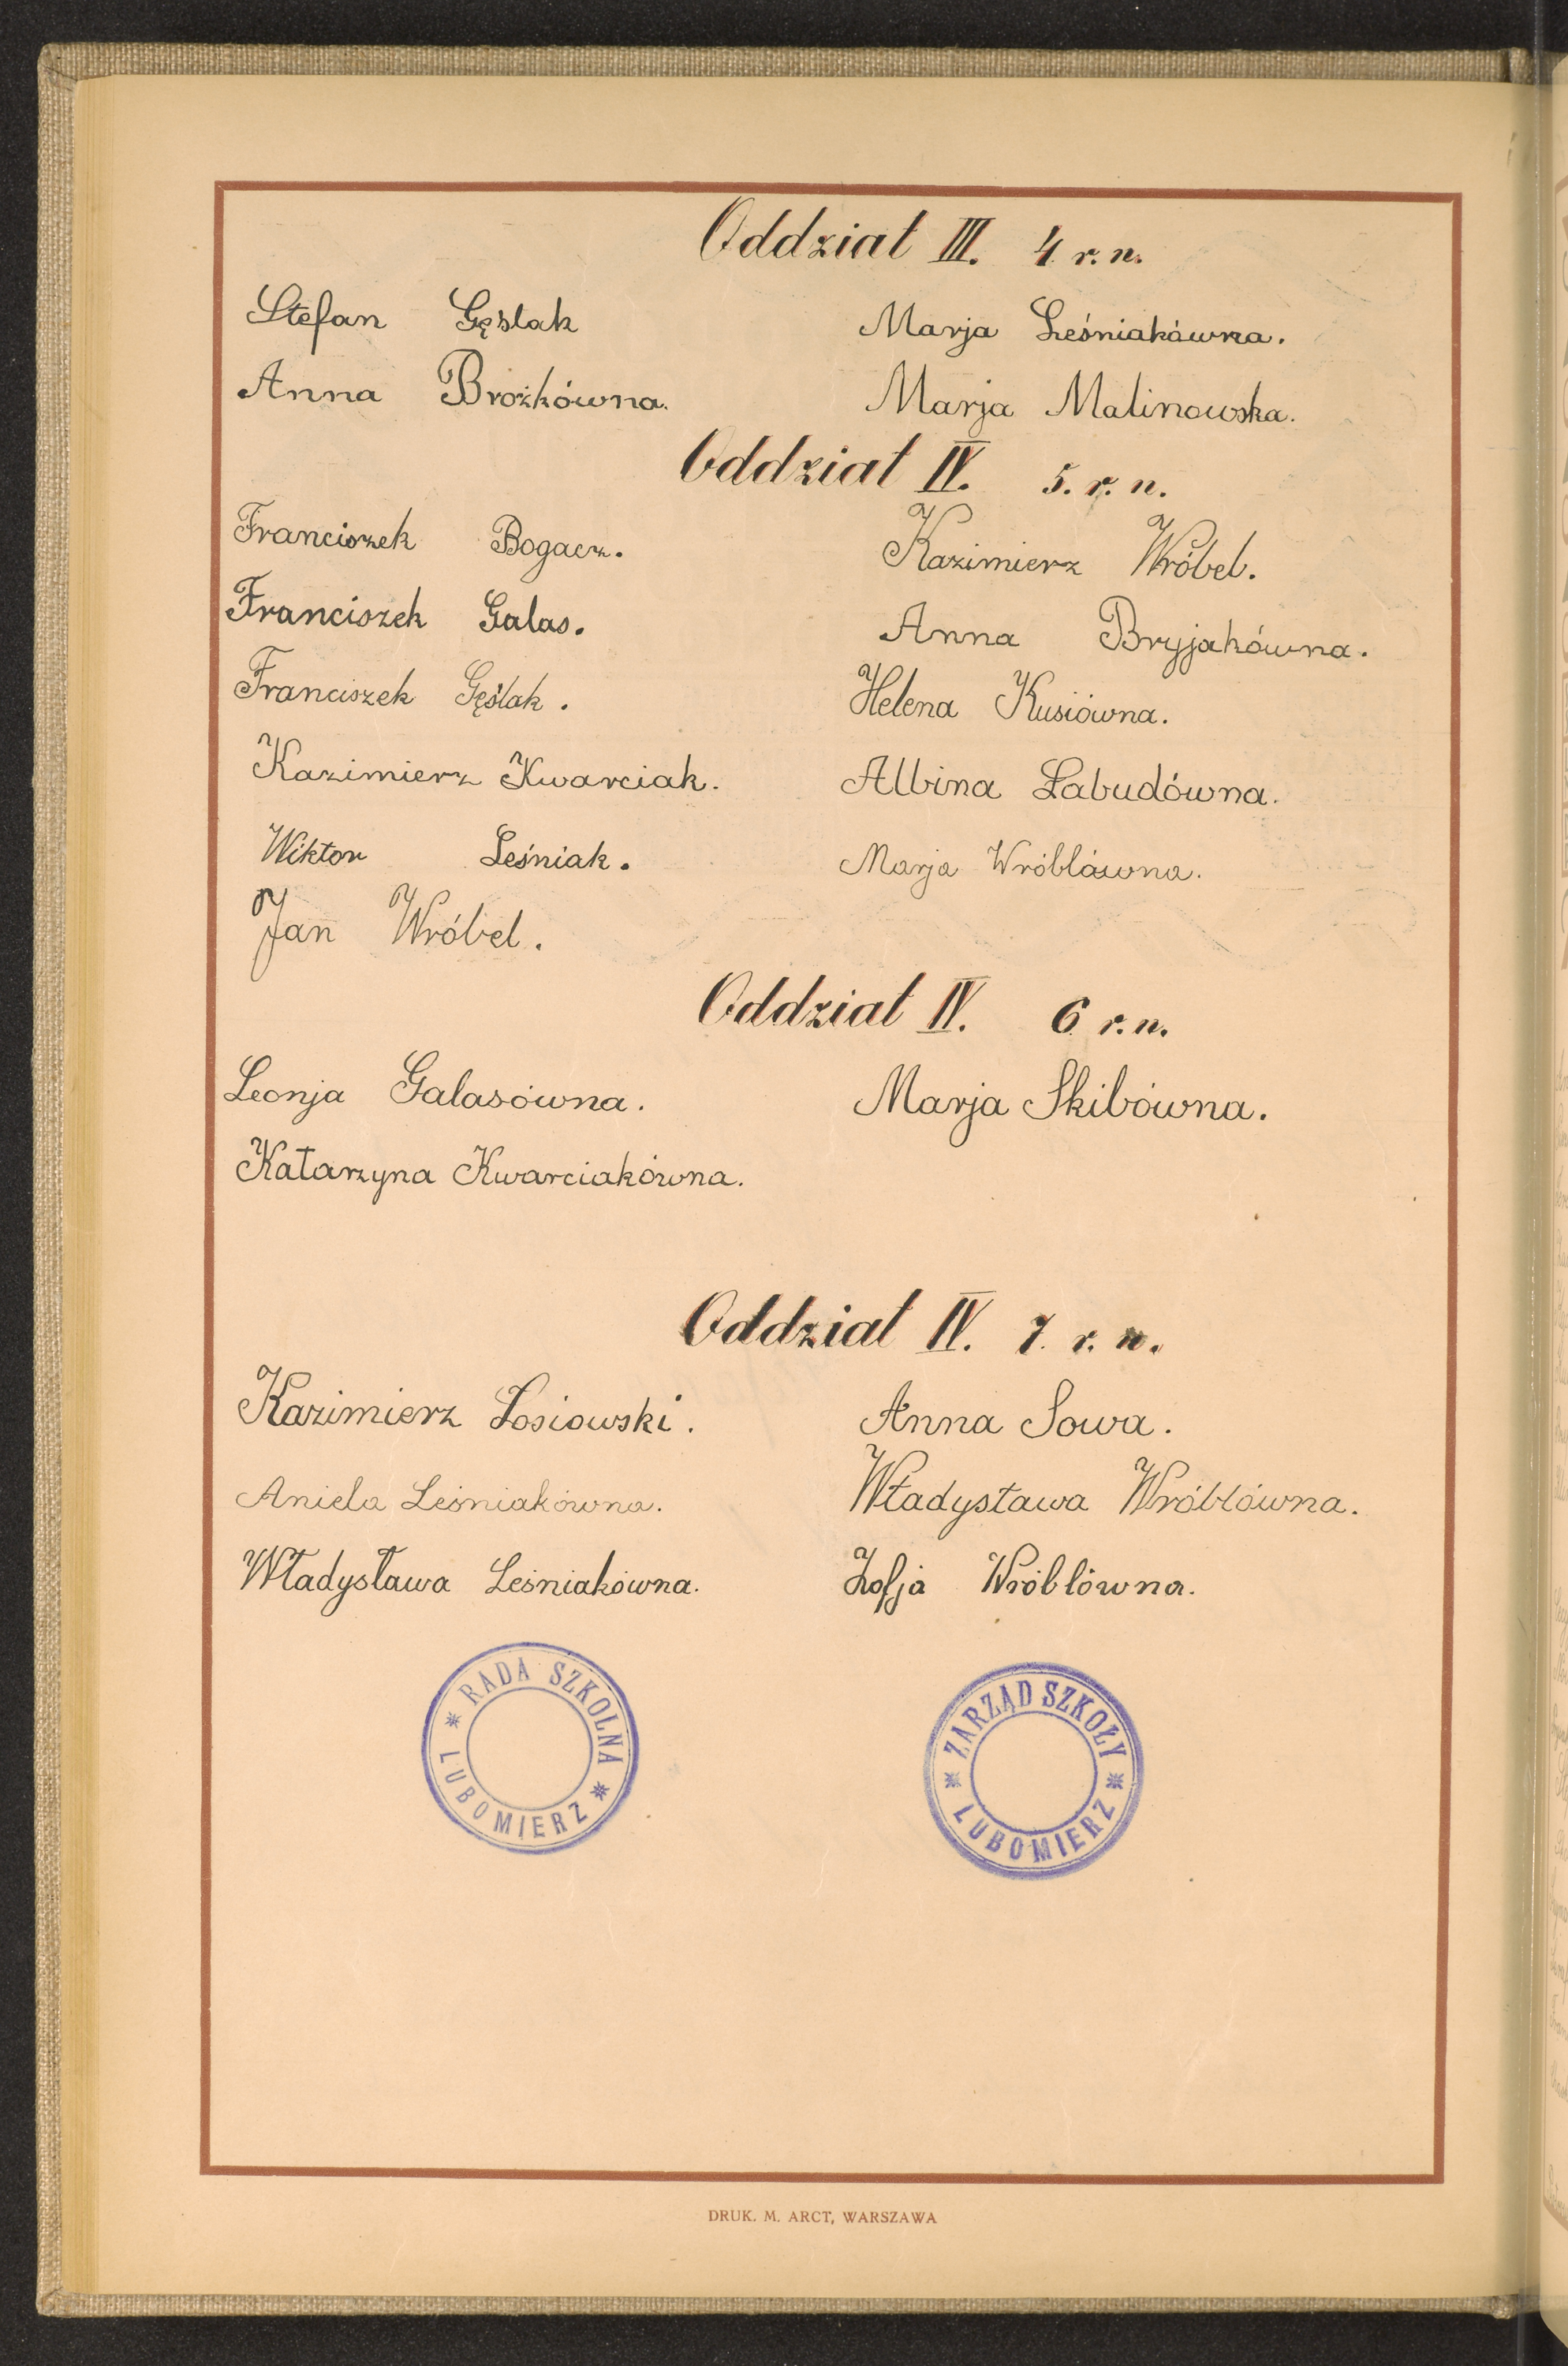 Oddział III. 4 r. n.
Stefan Gęślak
Marja Leśniakówna.
Anna Brożkówna.
Marja Malinowska.
Oddział IV. 5. r. n.
Franciszek Bogacz.
Kazimierz Wróbel.
Franciszek Galas.
Anna Bryjakówna.
Franciszek Gęślak.
Helena Kusiówna.
Kazimierz Kwarciak.
Albina Łabudówna.
Wiktor Leśniak.
Marja Wróblówna.
Jan Wróbel.
Oddział IV. 6 r. n.
Leonja Galasówna.
Marja Skibówna.
Katarzyna Kwarciakówna.
Oddział IV. 7. r. n.
Kazimierz Łosiowski.
Anna Sowa.
Aniela Leśniakówna.
Władysława Wróblówna.
Władysława Leśniakówna.
Zofja Wróblówna.
RADA SZKOLNA
* LUBOMIERZ *
ZARZĄD SZKOŁY
* LUBOMIERZ *
DRUK. M. ARCT, WARSZAWA